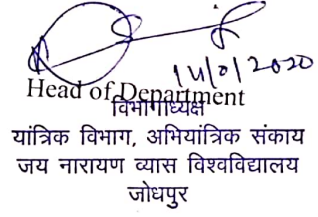 14/01/2020
Head of Department
विभागाध्यक्ष
यांत्रिक विभाग, अभियांत्रिक संकाय
जय नारायण व्यास विश्वविद्यालय
जोधपुर